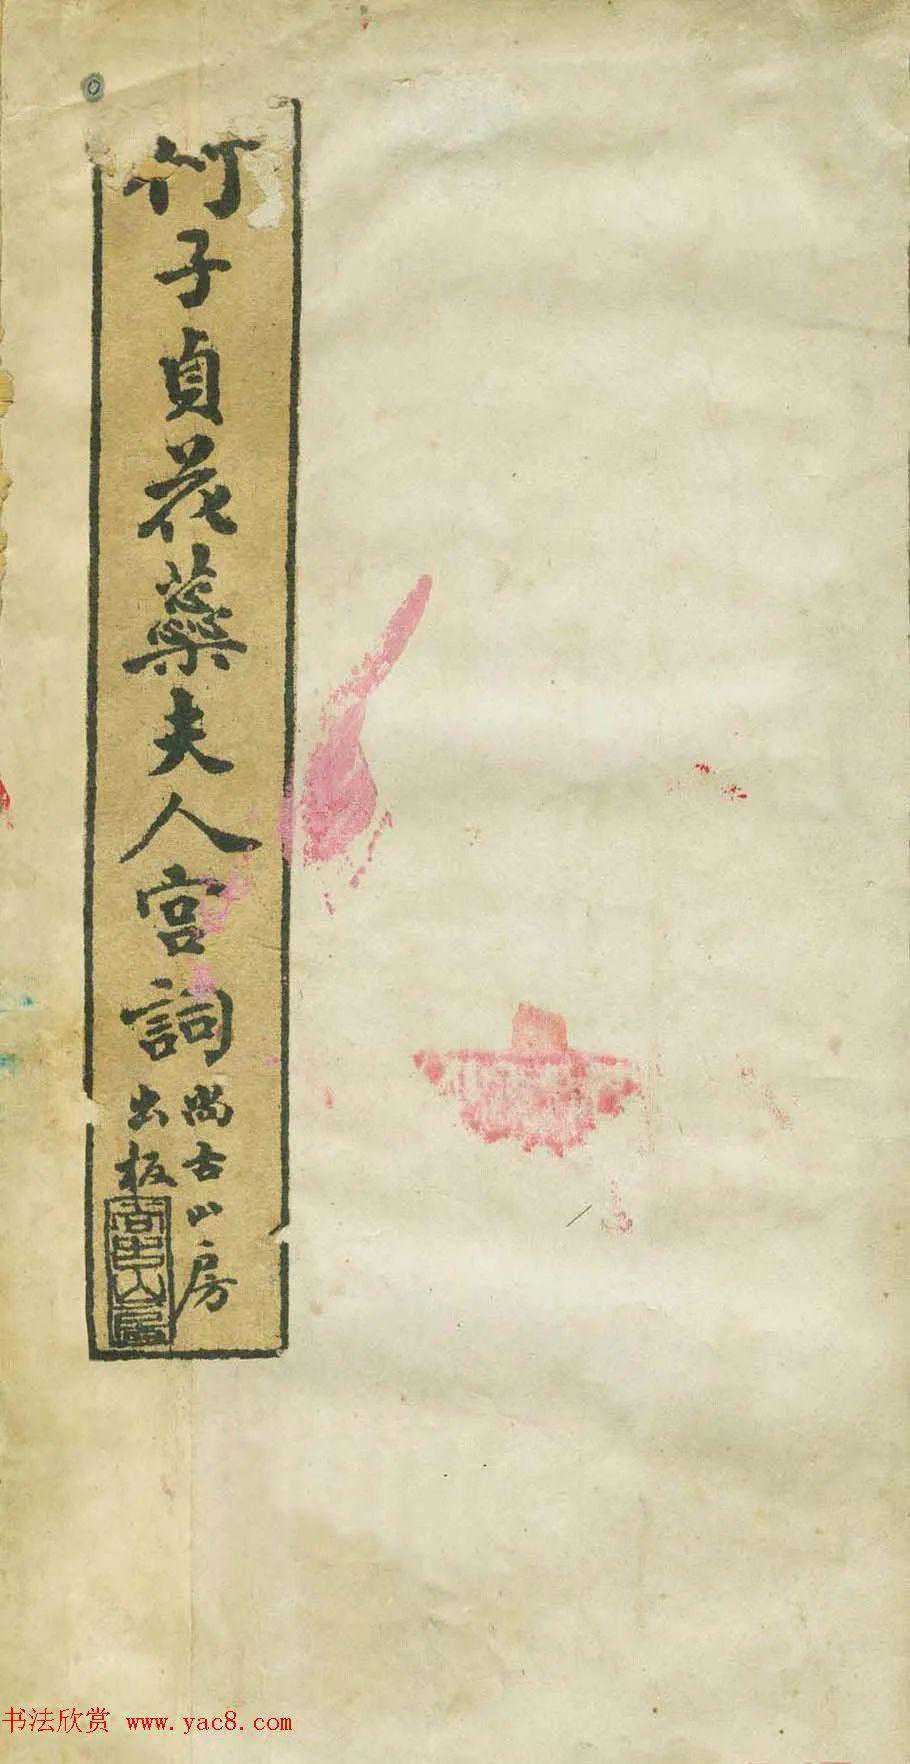 何子貞花蘂夫人宮詞
尚古山房
出板
尚古山房
书法欣赏 www.yac8.com